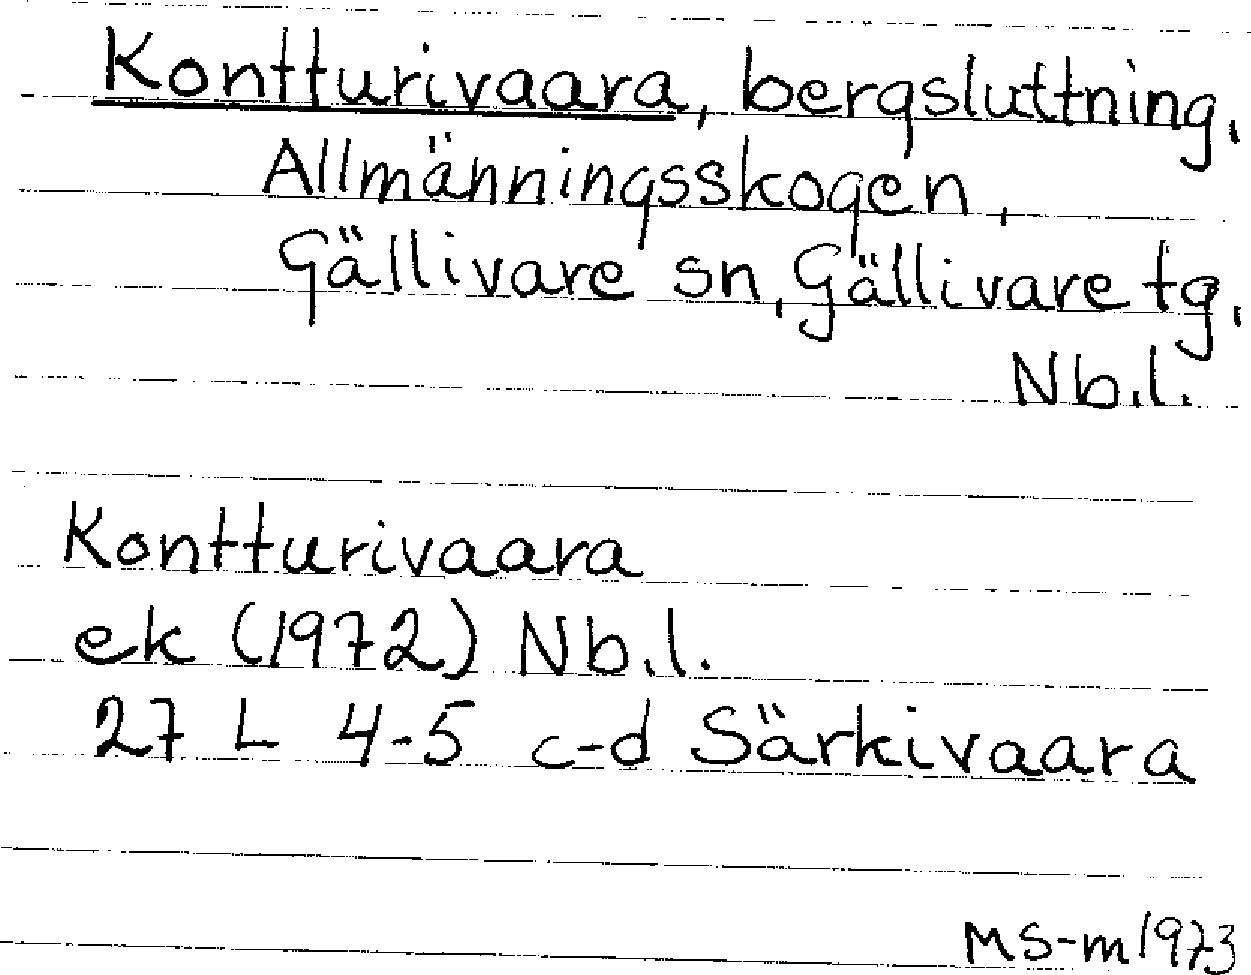 Kontturivaara, bergsluttning,
Allmänningsskogen,
Gällivare sn, Gällivare tg,
Nb.l.
Kontturivaara
ek (1972) Nb.l.
27 L 4-5 c-d Särkivaara
MS-m 1973